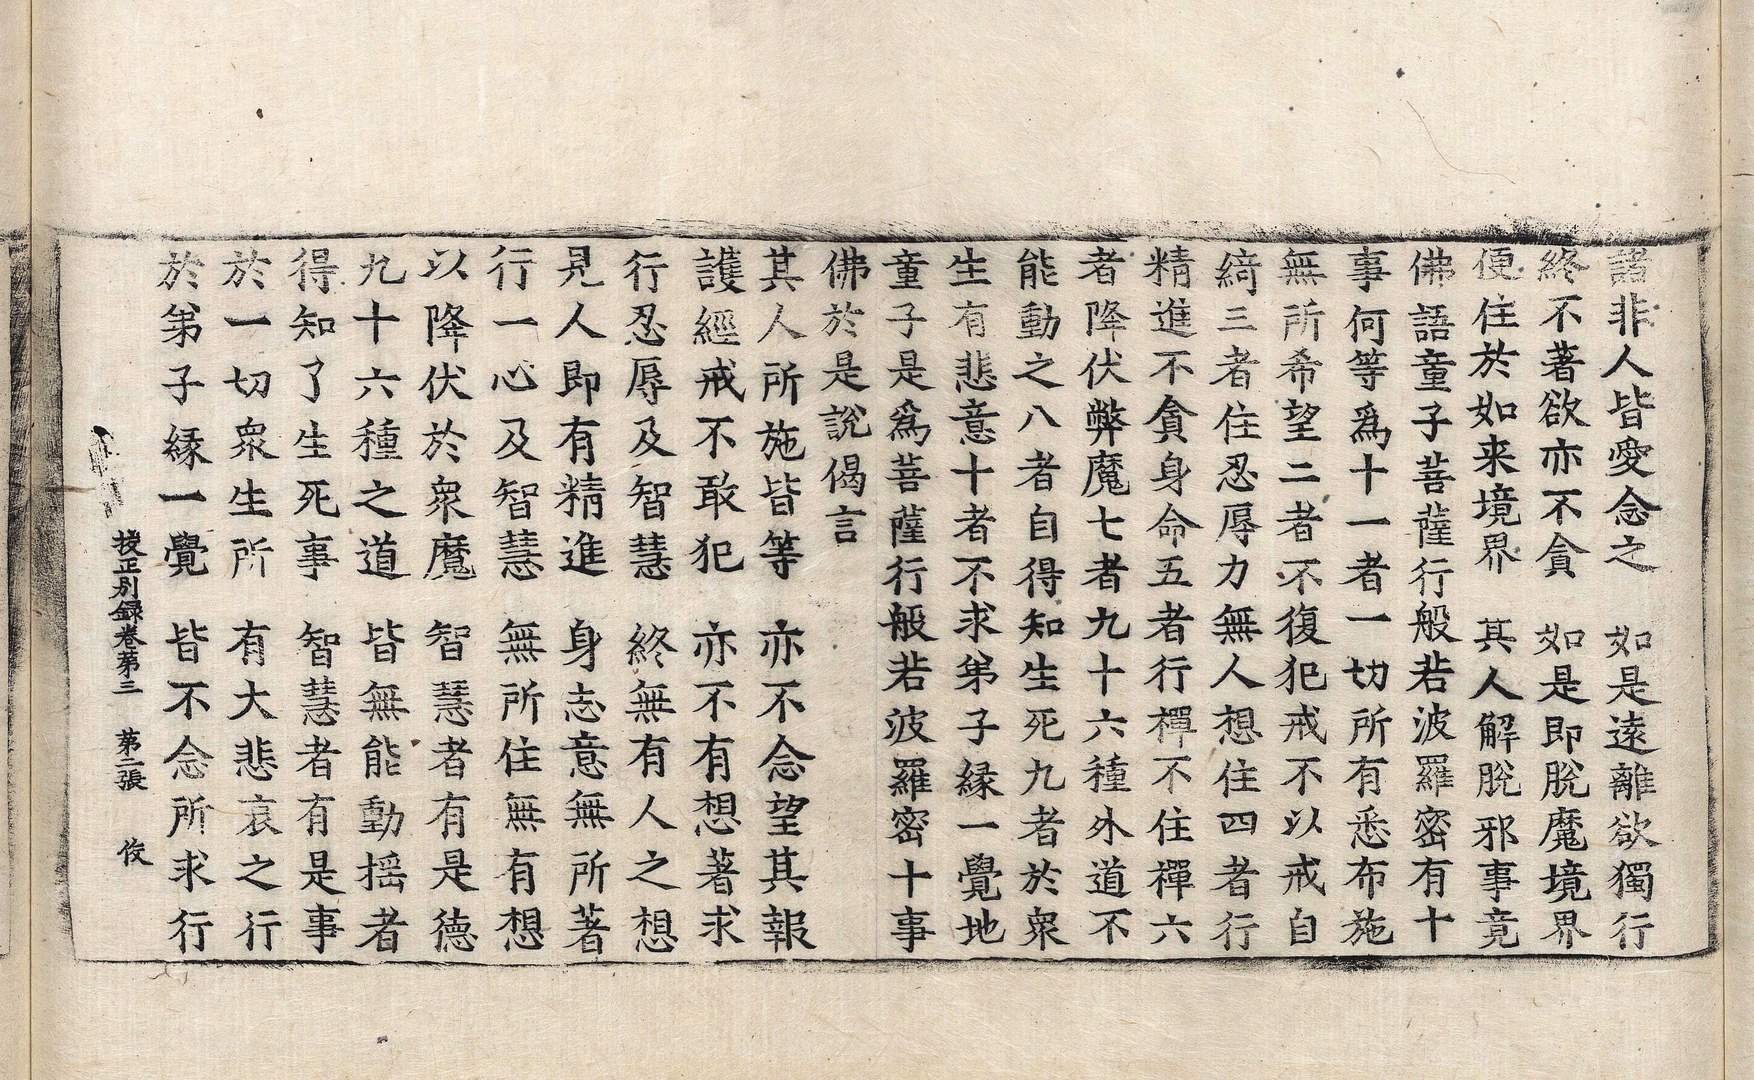 諸非人皆愛念之　如是遠離欲獨行
終不著欲亦不貪　如是即脫魔境界
便住於如来境界　其人解脫邪事竟
佛語童子菩薩行般若波羅密有十
事何等爲十一者一切所有悉布施
無所希望二者不復犯戒不以戒自
綺三者住忍辱力無人想住四者行
精進不貪身命五者行禪不住禪六
者降伏弊魔七者九十六種外道不
能動之八者自得知生死九者於衆
生有悲意十者不求弟子縁一覺地
童子是爲菩薩行般若波羅密十事
佛於是說偈言
其人所施皆等　亦不念望其報
護經戒不敢犯　亦不有想著求
行忍辱及智慧　終無有人之想
見人即有精進　身志意無所著
行一心及智慧　無所住無有想
以降伏於衆魔　智慧者有是德
九十六種之道　皆無能動揺者
得知了生死事　智慧者有是事
於一切衆生所　有大悲哀之行
於弟子縁一覺　皆不念所求行
挍正别録卷第三　第二張　俊